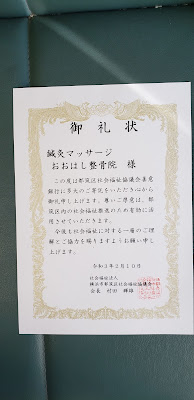 御礼状
鍼灸マッサージ
おおはし整骨院 様
この度は都筑区社会福祉協議会善意
銀行に多大のご寄託をいただき心から
御礼申し上げます。尊いご厚意は、都
筑区内の社会福祉推進のため有効に活
用させていただきます。
今後も社会福祉に対する一層のご理
解とご協力を賜りますようお願い申し
上げます。
令和3年3月10日
社会福祉法人
横浜市都筑区社会福祉協議会
会長 村田 輝雄